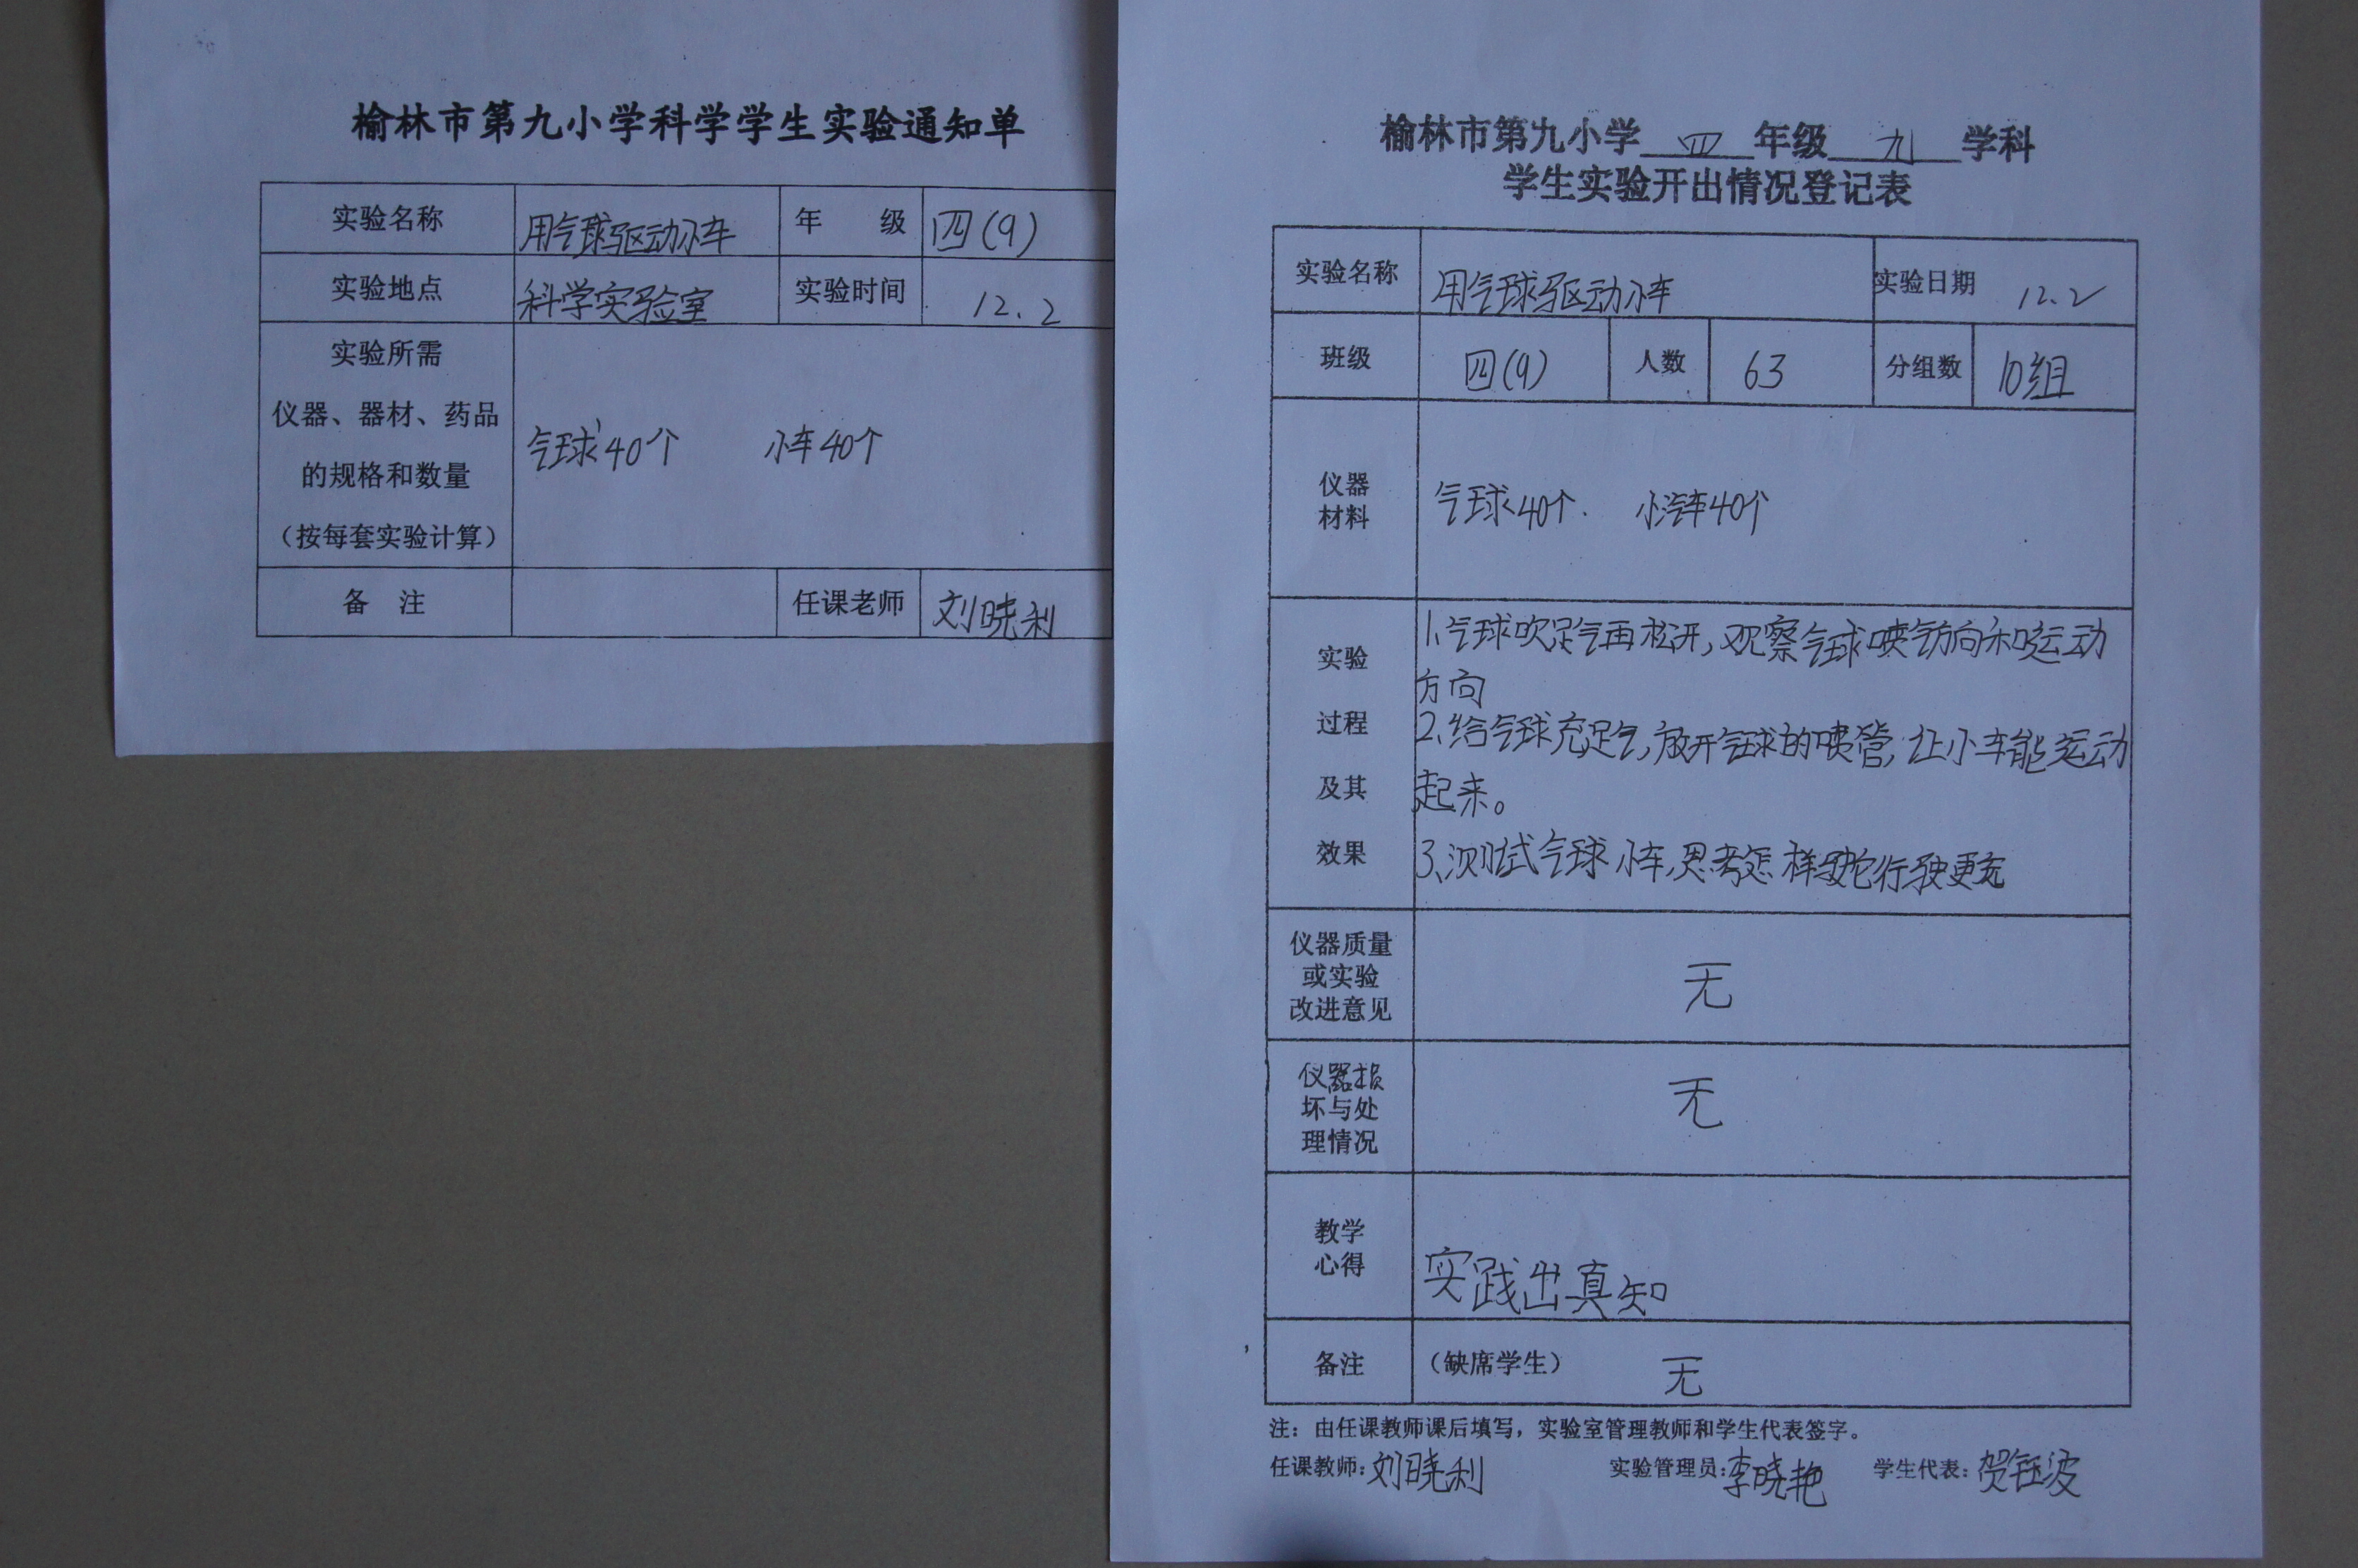 榆林市第九小学科学学生实验通知单
实验名称 用气球驱动小车 年 级 四(9)
实验地点 科学实验室 实验时间 12.2
实验所需
仪器、器材、药品
的规格和数量
（按每套实验计算）
气球40个 小车40个
备 注 任课老师 刘晓利
榆林市第九小学 四 年级 九 学科
学生实验开出情况登记表
实验名称 用气球驱动小车 实验日期 12.2
班级 四(9) 人数 63 分组数 10组
仪器
材料
气球40个. 小汽车40个
实验
过程
及其
效果
1、气球吹足气再松开,观察气球喷气方向和运动
方向
2、给气球充足气,放开气球的喷管,让小车能运动
起来。
3、测试气球小车,思考怎样驶行驶更
仪器质量
或实验
改进意见
无
仪器损
坏与处
理情况
无
教学
心得
实践出真知
备注 （缺席学生） 无
注：由任课教师课后填写，实验室管理教师和学生代表签字。
任课教师：刘晓利 实验管理员：李晓艳 学生代表：贺钰波